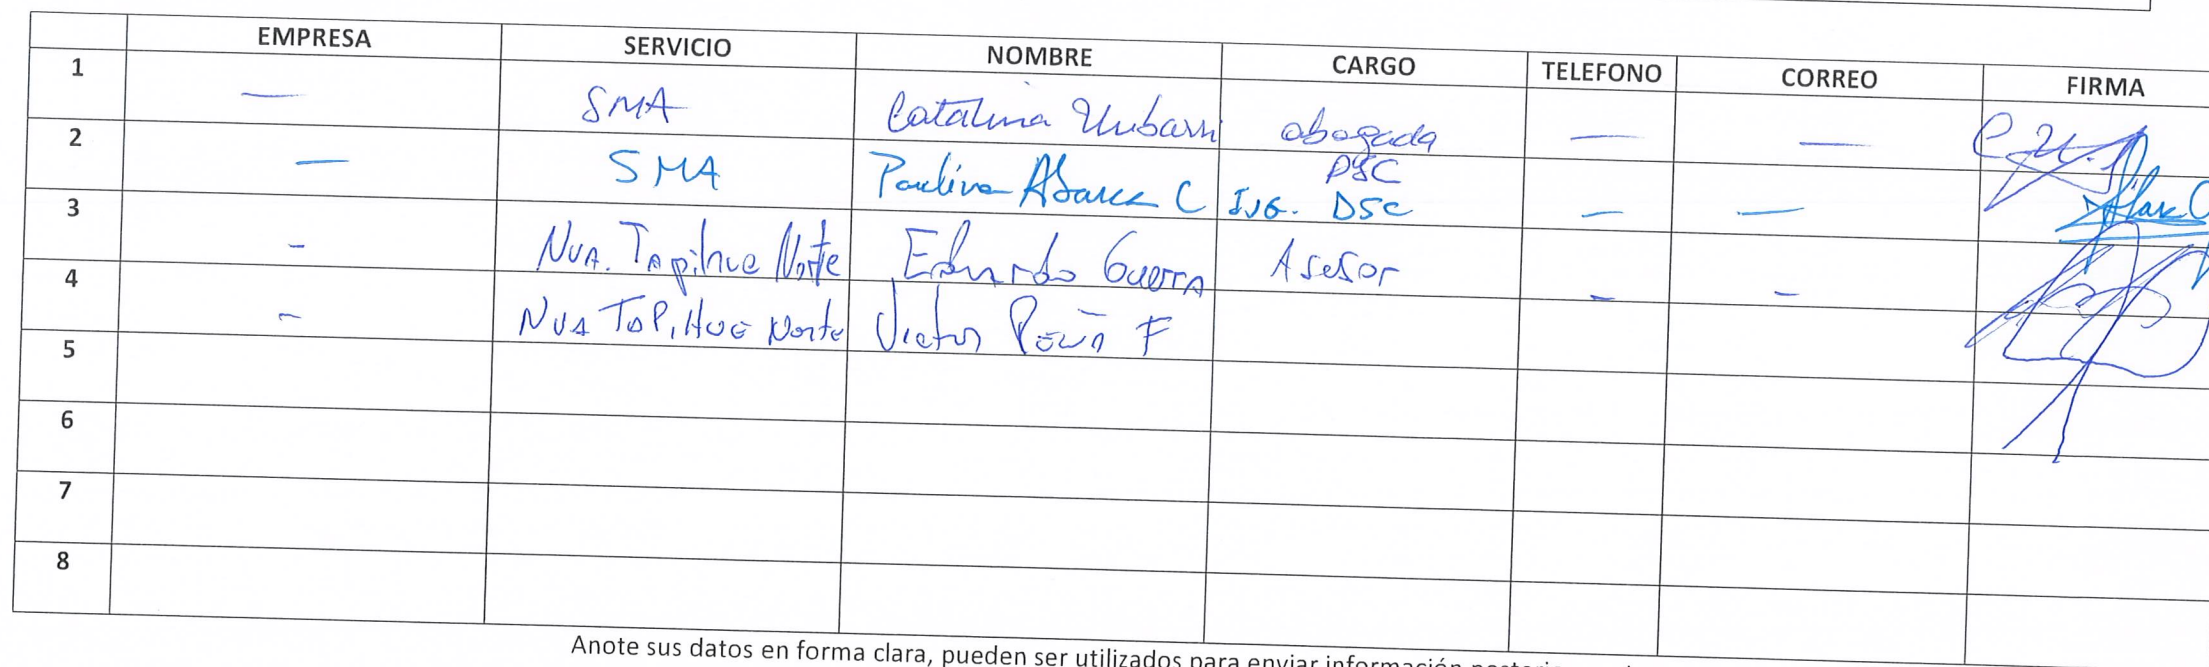 EMPRESA SERVICIO NOMBRE CARGO TELEFONO CORREO FIRMA
1 — SMA Catalina Uribarri abogada DSC — —
2 — SMA Paulina Abarca C Ing. DSC — —
3 - Nva. Tapihue Norte Eduardo Guerra Asesor - -
4 - Nva Tapihue Norte Victor Peña F
5
6
7
8
Anote sus datos en forma clara, pueden ser utilizados para enviar información